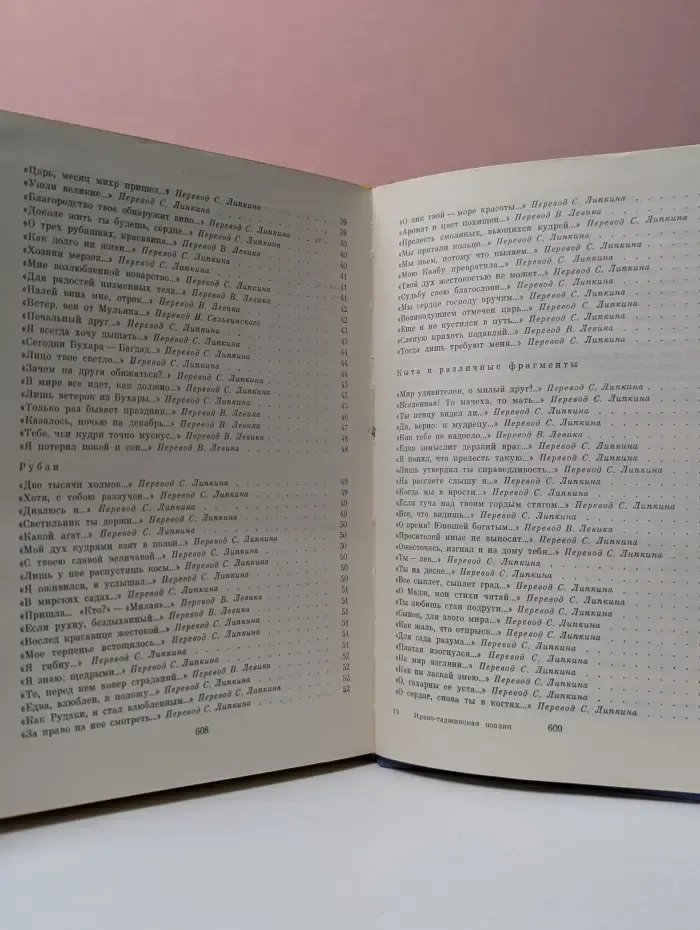 «Царь, месяц михр пришел...» Перевод С. Липкина
«Ушли великие...» Перевод С. Липкина . . . 39
«Благородство твое обнаружит вино...» Перевод С. Липкина . . . 39
«Доколе жить ты будешь, сердце...» Перевод С. Липкина . . . 40
«О трех рубашках, красавица...» Перевод В. Левика . . . 40
«Как долго ни живи...» Перевод С. Липкина . . . 40
«Хозяин мерзок...» Перевод С. Липкина . . . 41
«Мне возлюбленной коварство...» Перевод С. Липкина . . . 41
«Для радостей низменных тела...» Перевод В. Левика . . . 41
«Налей вина мне, отрок...» Перевод В. Левика . . . 42
«Ветер, вея от Мульяна...» Перевод И. Сельвинского . . . 42
«Печальный друг...» Перевод С. Липкина . . . 43
«Я всегда хочу дышать...» Перевод С. Липкина . . . 43
«Сегодня Бухара — Багдад...» Перевод С. Липкина . . . 44
«Лицо твое светло...» Перевод С. Липкина . . . 44
«Зачем на друга обижаться?..» Перевод С. Липкина . . . 44
«В мире все идет, как должно...» Перевод С. Липкина . . . 45
«Лишь ветерок из Бухары...» Перевод С. Липкина . . . 45
«Только раз бывает праздник...» Перевод В. Левика . . . 45
«Казалось, ночью на декабрь...» Перевод В. Левика . . . 47
«Тебе, чьи кудри точно мускус...» Перевод В. Левика . . . 48
«Я потерял покой и сон...» Перевод В. Левика . . . 48
Рубаи
«Две тысячи холмов...» Перевод С. Липкина . . . 49
«Хотя, с тобою разлучен...» Перевод С. Липкина . . . 49
«Дивлюсь я...» Перевод С. Липкина . . . 49
«Светильник ты держи...» Перевод С. Липкина . . . 49
«Какой агат...» Перевод С. Липкина . . . 50
«Мой дух кудрями взят в полон...» Перевод С. Липкина . . . 50
«С твоею славой величавой...» Перевод С. Липкина . . . 50
«Лишь у нее распустишь косы...» Перевод С. Липкина . . . 50
«Я оживился, я услышал...» Перевод С. Липкина . . . 50
«В мирских садах...» Перевод С. Липкина . . . 50
«Пришла... «Кто?» — «Милая»...» Перевод В. Левика . . . 51
«Если рухну, бездыханный...» Перевод В. Левика . . . 51
«Вослед красавице жестокой...» Перевод С. Липкина . . . 51
«Мое терпенье истощилось...» Перевод С. Липкина . . . 51
«Я гибну...» Перевод С. Липкина . . . 51
«Я знаю: щедрыми...» Перевод С. Липкина . . . 52
«Те, перед кем ковер страданий...» Перевод В. Левика . . . 52
«Едва, влюблен, я положу...» Перевод С. Липкина . . . 52
«Как Рудаки, я стал влюбленным...» Перевод С. Липкина . . . 52
«За право на нее смотреть...» Перевод С. Липкина
608
«О лик твой — море красоты...» Перевод С. Липкина
«Аромат и цвет похищен...» Перевод В. Левика
«Прелесть смоляных, вьющихся кудрей...» Перевод С. Липкина
«Мы прятали кольцо...» Перевод С. Липкина
«Мы пьем, потому что пылаем...» Перевод С. Липкина
«Мою Каабу превратила...» Перевод С. Липкина
«Твой дух жестокостью не может...» Перевод С. Липкина
«Судьбу свою благослови...» Перевод С. Липкина
«Мы сердце господу вручим...» Перевод С. Липкина
«Великодушием отмечен царь...» Перевод С. Липкина
«Еще я не пустился в путь...» Перевод С. Липкина
«Слепую прихоть подавляй...» Перевод В. Левика
«Тогда лишь требуют меня...» Перевод С. Липкина
Кыта и различные фрагменты
«Мир удивителен, о милый друг!..» Перевод С. Липкина
«Вселенная! То мачеха, то мать...» Перевод С. Липкина
«Ты птицу видел ли...» Перевод С. Липкина
«Да, верно: к мудрецу...» Перевод С. Липкина
«Как тебе не надоело...» Перевод С. Липкина
«Едва замыслит дерзкий враг...» Перевод С. Липкина
«Я понял, что прелесть такую...» Перевод С. Липкина
«Лишь утвердил ты справедливость...» Перевод С. Липкина
«На рассвете слышу я...» Перевод С. Липкина
«Когда мы в ярости...» Перевод С. Липкина
«Если туча над твоим гордым стягом...» Перевод С. Липкина
«Все, что видишь...» Перевод С. Липкина
«О время! Юношей богатым...» Перевод В. Левика
«Просителей иные не выносят...» Перевод С. Липкина
«Ожесточась, изгнал я из дому тебя...» Перевод С. Липкина
«Ты — лев...» Перевод С. Липкина
«Ты на доске...» Перевод С. Липкина
«Все сыплет, сыплет град...» Перевод С. Липкина
«О Мадж, мои стихи читай...» Перевод С. Липкина
«Ты любишь стан подруги...» Перевод С. Липкина
«Сынок, для злого мира...» Перевод С. Липкина
«Как жаль, что отпрыск...» Перевод С. Липкина
«Для сада разума...» Перевод С. Липкина
«Платан изогнулся...» Перевод С. Липкина
«На мир взгляни...» Перевод С. Липкина
«Как ни ласкай змею...» Перевод С. Липкина
«О, сахарны ее уста...» Перевод С. Липкина
«О сердце, снова ты в когтях...» Перевод С. Липкина
Ирано-таджикская поэзия 609